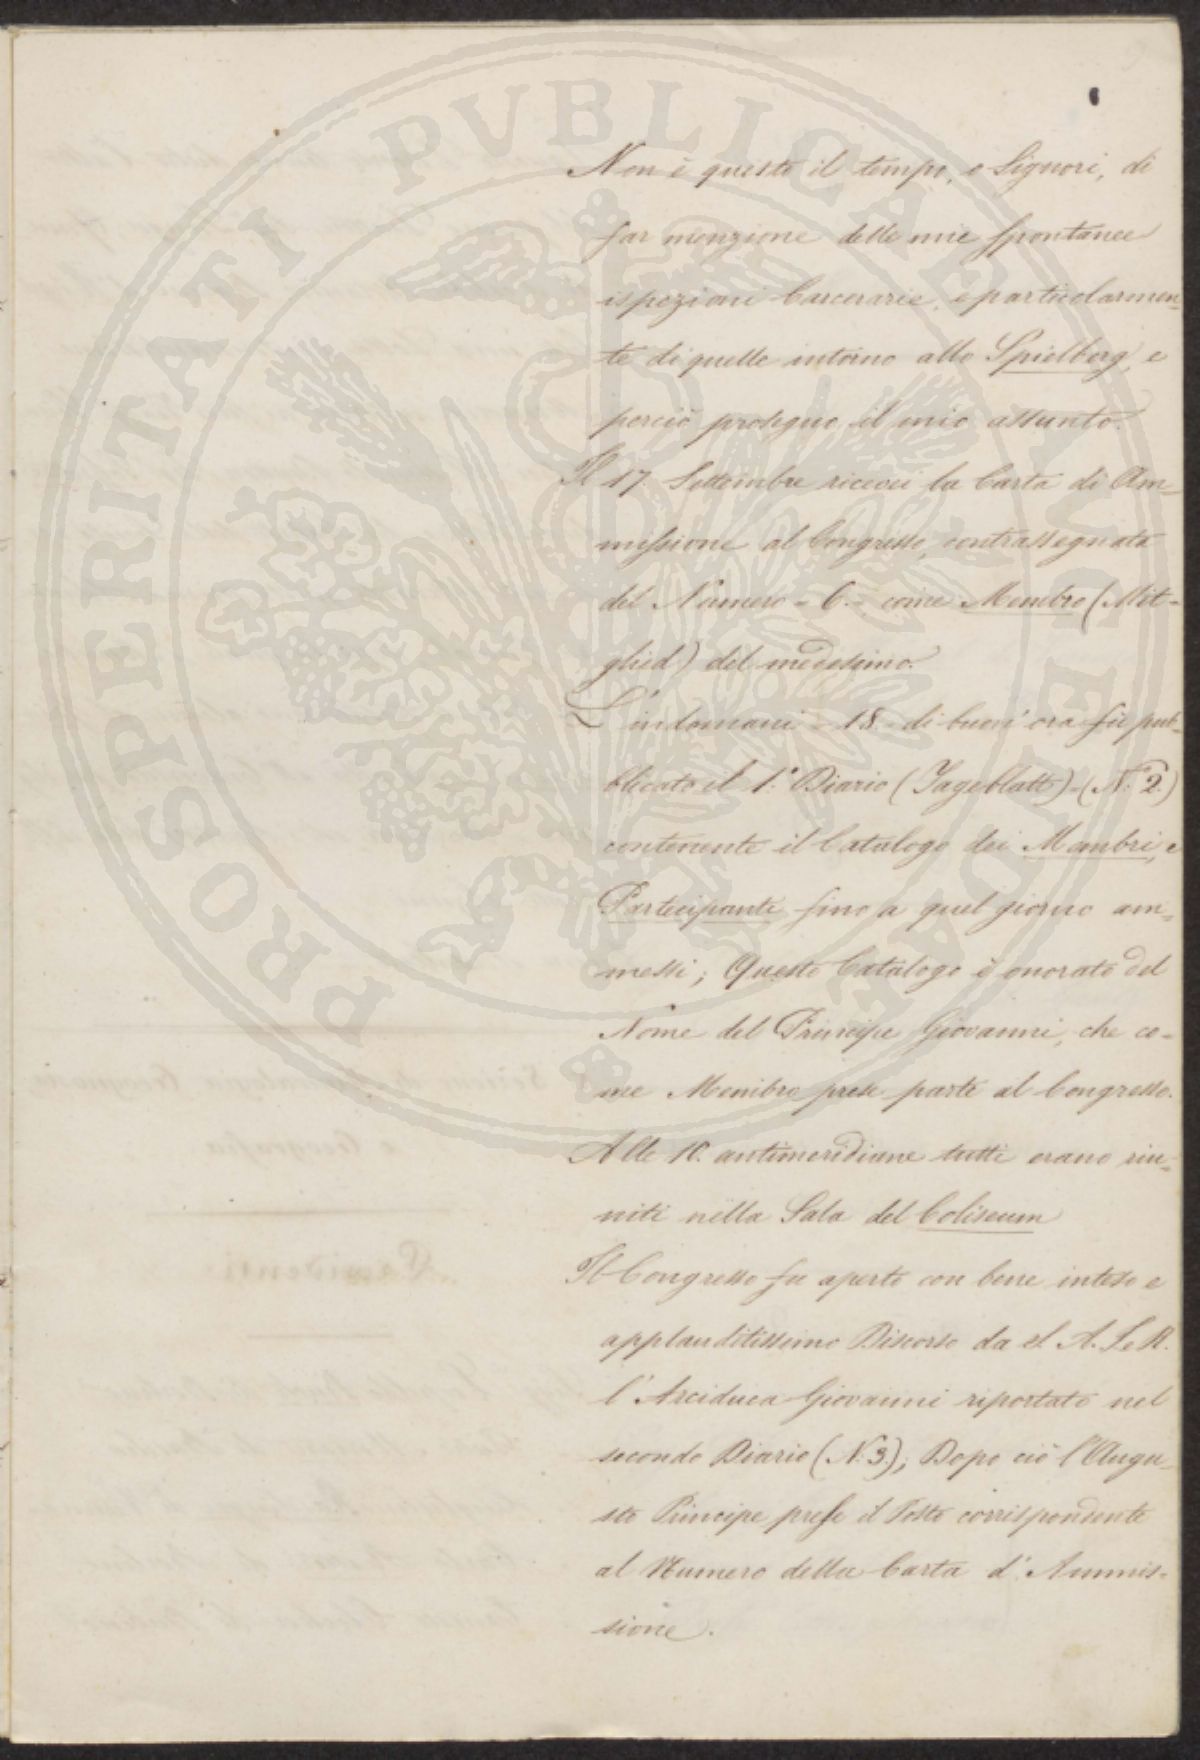 Non è questo il tempo, o Signori, di
far menzione delle mie spontanee
ispezioni Carcerarie, e particolarmen-
te di quelle intorno allo Spielberg, e
perciò proseguo il mio assunto.
Il 17. Settembre ricevei la Carta di Am-
missione al Congresso, contrassegnata
del Numero - 6. - come Membro (Mit-
glied) del medesimo.
L'indomani - 18. - di buon'ora fu pub-
blicato il 1.° Diario (Tageblatt) - (N. 2.)
contenente il Catalogo dei Membri, e
Partecipanti fino a quel giorno am-
messi; Questo Catalogo è onorato del
Nome del Principe Giovanni, che co-
me Membro prese parte al Congresso.
Alle 10. antimeridiane tutti erano riu-
niti nella Sala del Coliseum
Il Congresso fu aperto con bene inteso e
applauditissimo Discorso da S. A. I. e R.
l'Arciduca Giovanni riportato nel
secondo Diario (N. 3.); Dopo ciò l'Augu-
sto Principe prese il Posto corrispondente
al Numero della Carta d'Ammis-
sione.
PROSPERITATI PVBLICAE AVGENDAE